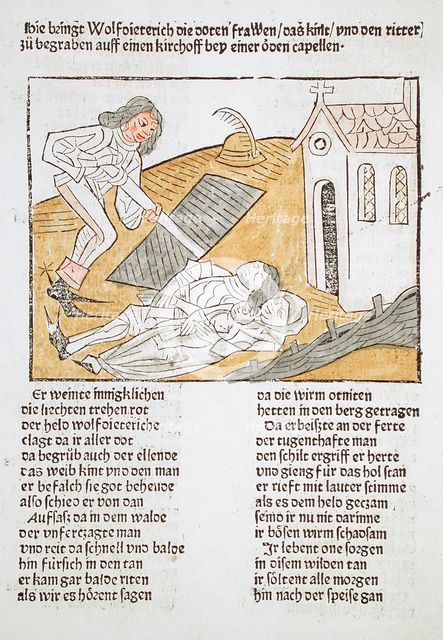 Hie bringt Wolfdieterich die doten frawen/das kint/vnd den ritter/
zů begraben auff einen kirchoff bey einer öden capellen·
Er weinte innigklichen
die liechten trehen rot
der held wolfdieteriche
clagt da ir aller dot
da begrůb auch der ellende
das weib kint vnd den man
er befalch sie got behende
also schied er von dan
Auffsaß da in dem walde
der vnferczagte man
vnd reit da schnell vnd balde
hin fürsich in den tan
er kam gar balde riten
als wir es hörent sagen
da die wirm otniten
hetten in den berg getragen
Da erbeißte an der ferte
der tugenthafte man
den schilt ergriff er herte
vnd gieng für das hol stan
er rieft mit lauter stimme
als es dem held geczam
seind ir nu nit darinne
ir bösen wirm schadsam
Ir lebent one sorgen
in disem wilden tan
ir söltent alle morgen
hin nach der speise gan
heritage